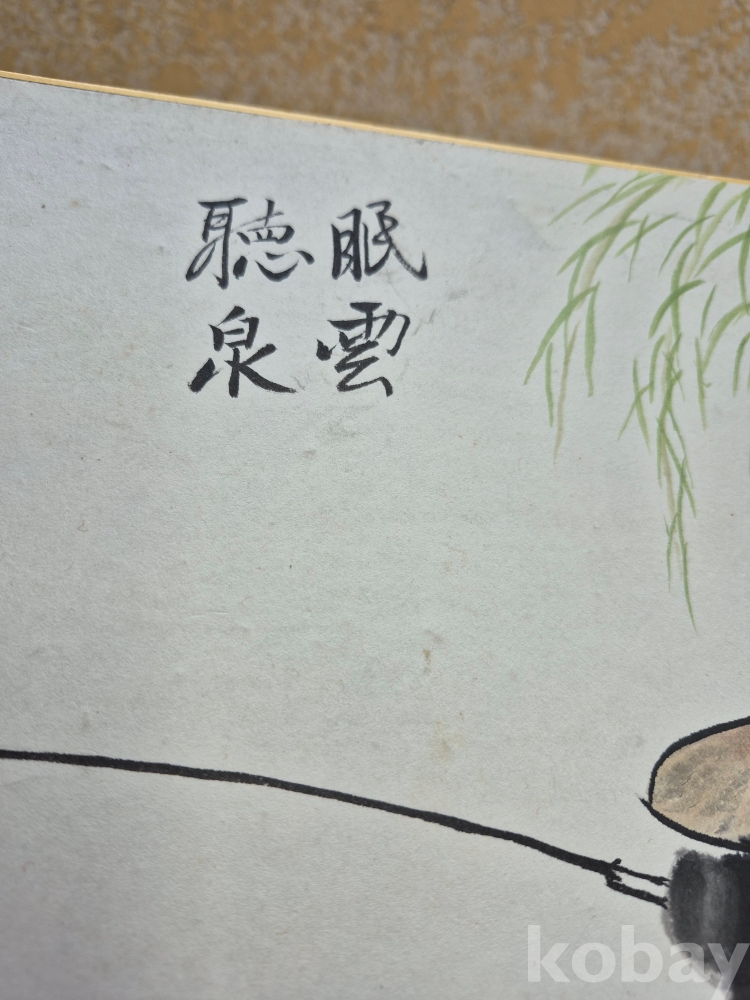 眠雲
聽泉
kobay